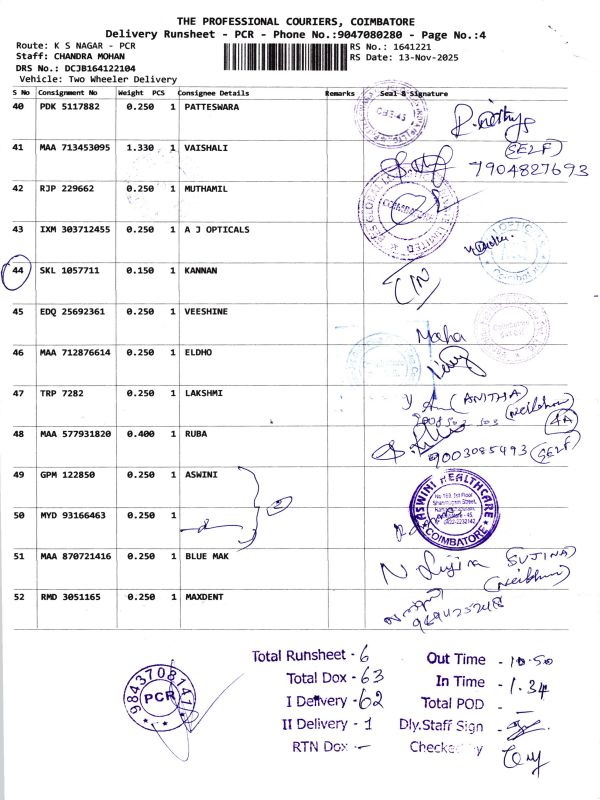 THE PROFESSIONAL COURIERS, COIMBATORE
Delivery Runsheet - PCR - Phone No.:9047080280 - Page No.:4
Route: K S NAGAR - PCR RS No.: 1641221
Staff: CHANDRA MOHAN RS Date: 13-Nov-2025
DRS No.: DCJB164122104
Vehicle: Two Wheeler Delivery
S No Consignment No Weight PCS Consignee Details Remarks Seal & Signature
40 PDK 5117882 0.250 1 PATTESWARA
41 MAA 713453095 1.330 1 VAISHALI (SELF)
7904827693
42 RJP 229662 0.250 1 MUTHAMIL
43 IXM 303712455 0.250 1 A J OPTICALS
44 SKL 1057711 0.150 1 KANNAN
45 EDQ 25692361 0.250 1 VEESHINE
Maha
46 MAA 712876614 0.250 1 ELDHO
47 TRP 7282 0.250 1 LAKSHMI (ANITHA)
4A
48 MAA 577931820 0.400 1 RUBA 9003085493 (SELF)
49 GPM 122850 0.250 1 ASWINI
ASWINI HEALTHCARE
COIMBATORE
50 MYD 93166463 0.250 1
2
51 MAA 870721416 0.250 1 BLUE MAK SUJINA
52 RMD 3051165 0.250 1 MAXDENT
Total Runsheet - 6 Out Time - 10.50
Total Dox - 63 In Time - 1.34
I Delivery - 62 Total POD -
II Delivery - 1 Dly.Staff Sign -
RTN Dox - Checked By
9843708141
PCR